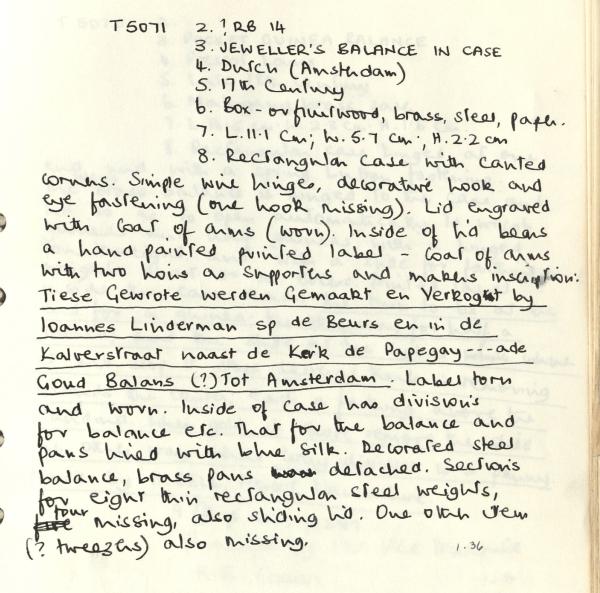 T5071 2. ? RB 14
3. JEWELLER'S BALANCE IN CASE
4. Dutch (Amsterdam)
5. 17th Century
6. Box- or fruitwood, brass, steel, paper.
7. L. 11.1 cm; W. 5.7 cm; H. 2.2 cm
8. Rectangular case with canted
corners. Simple wire hinges, decorative hook and
eye fastening (one hook missing). Lid engraved
with coat of arms (worn). Inside of lid bears
a hand painted printed label - coat of arms
with two lions as supporters and makers inscription:
Tiese Gewrote werden Gemaakt en Verkogt by
Ioannes Linderman sp de Beurs en in de
Kalverstraat naast de Kerk de Papegay ...-ade
Goud Balans (?) Tot Amsterdam. Label torn
and worn. Inside of case has divisions
for balance etc. That for the balance and
pans lined with blue silk. Decorated steel
balance, brass pans detached. Sections
for eight thin rectangular steel weights,
four missing, also sliding lid. One other item
(? tweezers) also missing.
1.36